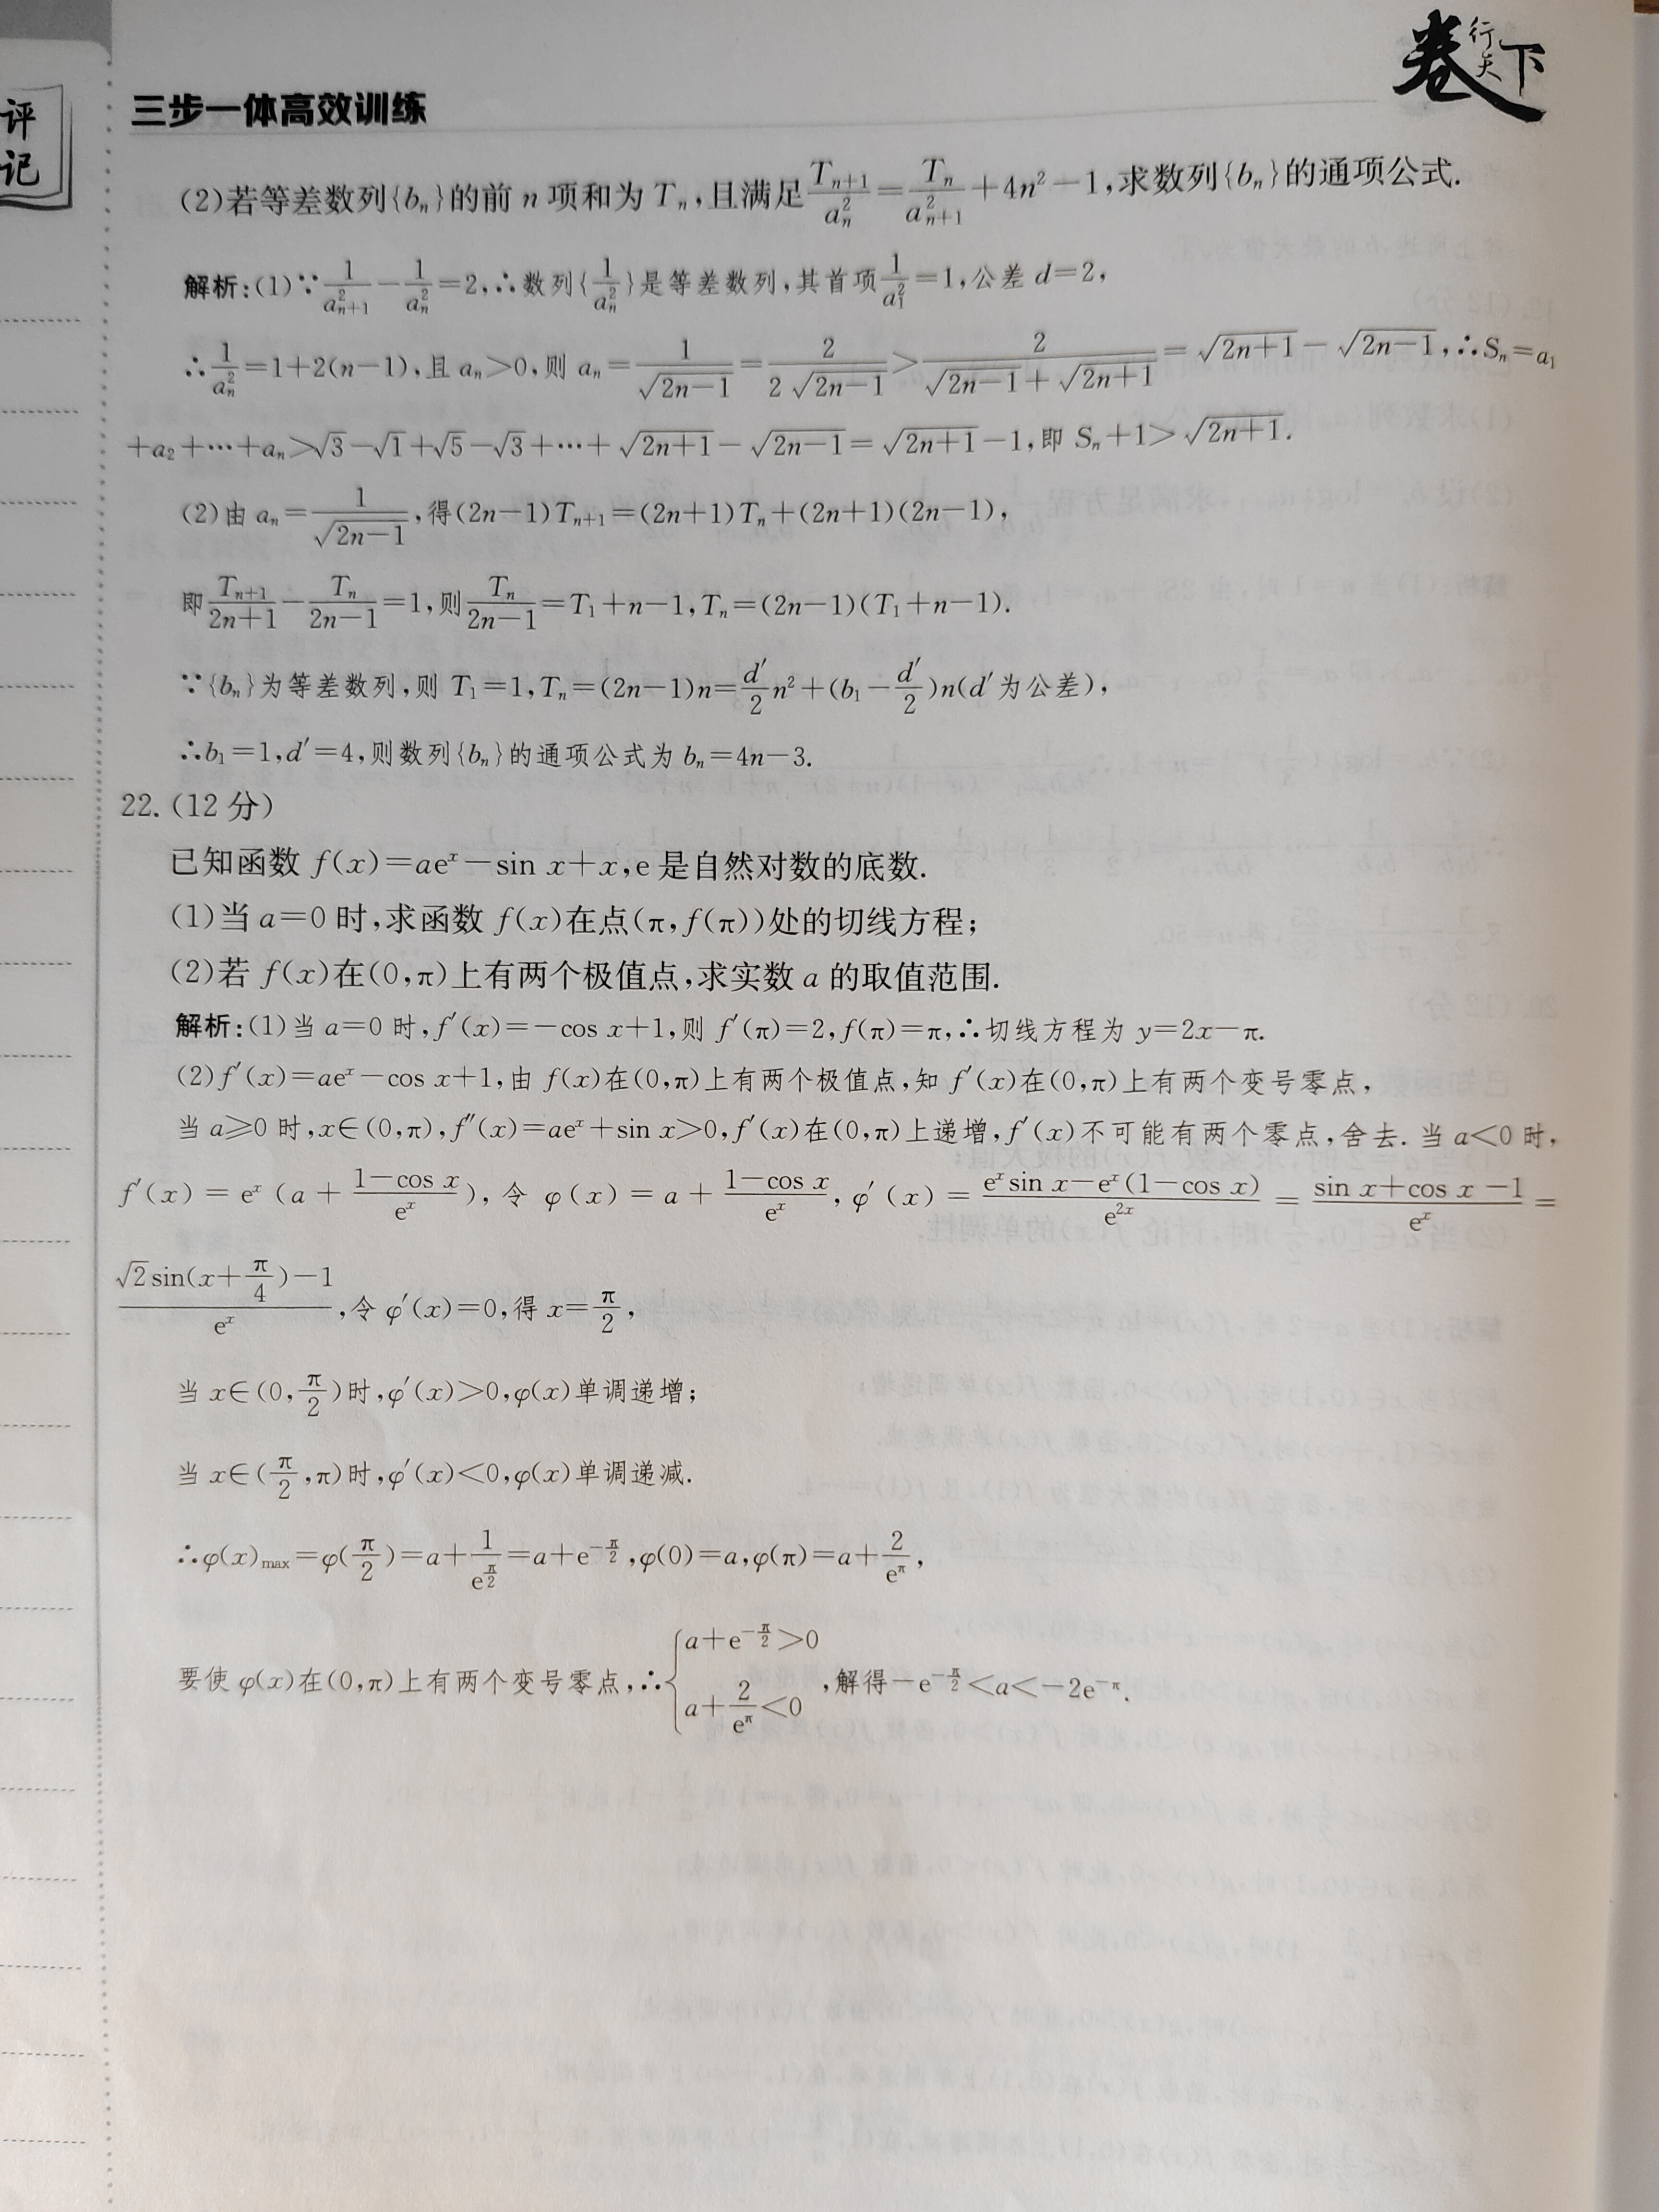 卷行天下
三步一体高效训练
评
记
(2)若等差数列{bₙ}的前 n 项和为 Tₙ,且满足 Tₙ₊₁/aₙ² = Tₙ/aₙ₊₁² +4n²−1,求数列{bₙ}的通项公式.
解析:(1)∵ 1/aₙ₊₁² − 1/aₙ² =2,∴数列{1/aₙ²}是等差数列,其首项 1/a₁² =1,公差 d=2,
∴ 1/aₙ² =1+2(n−1),且 aₙ>0,则 aₙ= 1/√(2n−1) = 2/(2√(2n−1)) > 2/(√(2n−1)+√(2n+1)) = √(2n+1)−√(2n−1),∴Sₙ=a₁
+a₂+⋯+aₙ>√3−√1+√5−√3+⋯+√(2n+1)−√(2n−1)=√(2n+1)−1,即 Sₙ+1>√(2n+1).
(2)由 aₙ= 1/√(2n−1),得(2n−1)Tₙ₊₁=(2n+1)Tₙ+(2n+1)(2n−1),
即 Tₙ₊₁/(2n+1) − Tₙ/(2n−1) =1,则 Tₙ/(2n−1) =T₁+n−1,Tₙ=(2n−1)(T₁+n−1).
∵{bₙ}为等差数列,则 T₁=1,Tₙ=(2n−1)n= d′/2 n²+(b₁− d′/2)n(d′为公差),
∴b₁=1,d′=4,则数列{bₙ}的通项公式为 bₙ=4n−3.
22.(12 分)
已知函数 f(x)=aeˣ−sin x+x,e 是自然对数的底数.
(1)当 a=0 时,求函数 f(x)在点(π,f(π))处的切线方程;
(2)若 f(x)在(0,π)上有两个极值点,求实数 a 的取值范围.
解析:(1)当 a=0 时,f′(x)=−cos x+1,则 f′(π)=2,f(π)=π,∴切线方程为 y=2x−π.
(2)f′(x)=aeˣ−cos x+1,由 f(x)在(0,π)上有两个极值点,知 f′(x)在(0,π)上有两个变号零点,
当 a⩾0 时,x∈(0,π),f″(x)=aeˣ+sin x>0,f′(x)在(0,π)上递增,f′(x)不可能有两个零点,舍去. 当 a<0 时,
f′(x) = eˣ (a + (1−cos x)/eˣ), 令 φ(x) = a + (1−cos x)/eˣ, φ′(x) = (eˣsin x−eˣ(1−cos x))/e²ˣ = (sin x+cos x −1)/eˣ =
(√2sin(x+π/4)−1)/eˣ,令 φ′(x)=0,得 x=π/2,
当 x∈(0,π/2)时,φ′(x)>0,φ(x)单调递增;
当 x∈(π/2,π)时,φ′(x)<0,φ(x)单调递减.
∴φ(x)max=φ(π/2)=a+1/e^(π/2)=a+e^(−π/2),φ(0)=a,φ(π)=a+2/e^π,
要使 φ(x)在(0,π)上有两个变号零点,∴{a+e^(−π/2)>0
a+2/e^π<0 ,解得−e^(−π/2)<a<−2e^(−π).